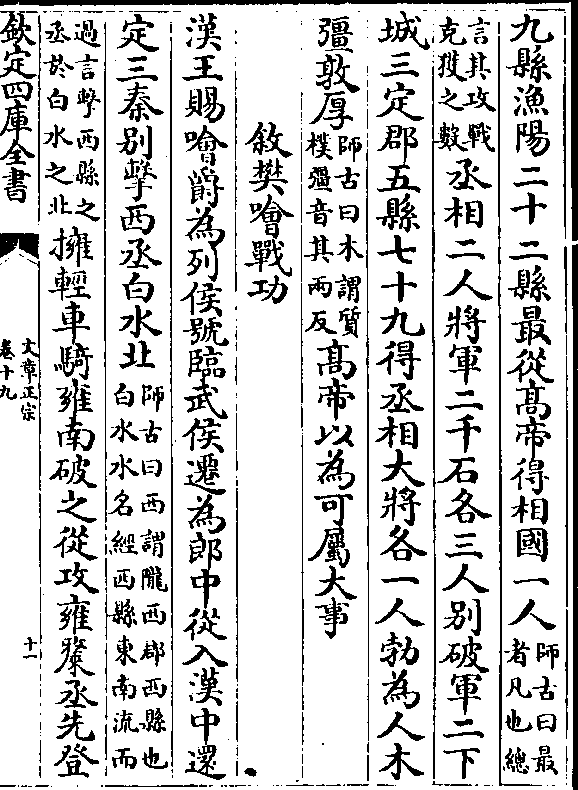 九縣漁陽二十二縣最從髙帝得相國一人師古曰最者凡也總
言其攻戰克獲之數丞相二人將軍二千石各三人别破軍二下
城三定郡五縣七十九得丞相大將各一人勃為人木
彊敦厚師古曰木謂質樸彊音其兩反髙帝以為可屬大事
敘樊噲戰功
漢王賜噲爵為列侯號臨武侯遷為郎中從入漢中還
定三秦别擊西丞白水北師古曰西謂隴西郡西縣也白水水名經西縣東南流而
過言擊西縣之丞於白水之北擁輕車騎雍南破之從攻雍斄丞先登
欽定四庫全書
文章正宗
卷十九
十一